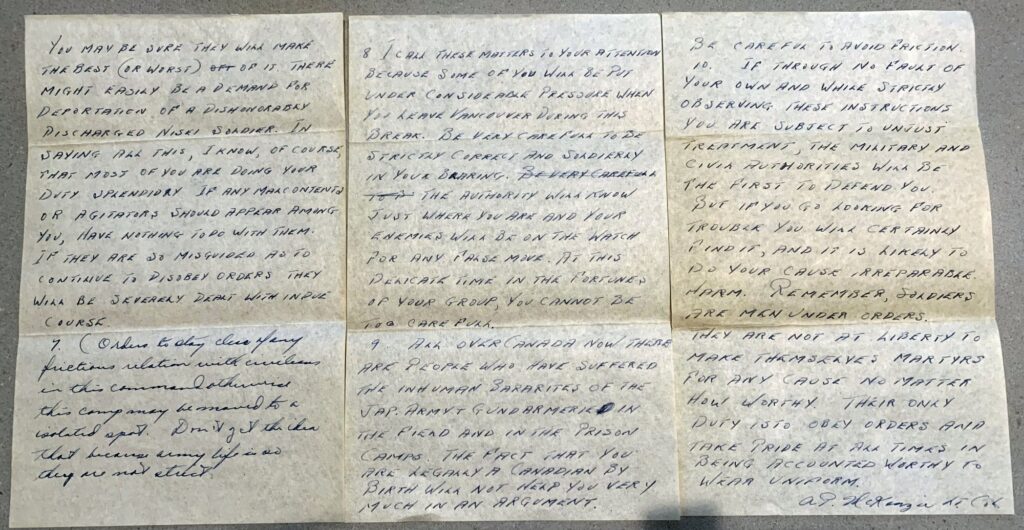 YOU MAY BE SURE THEY WILL MAKE
THE BEST (OR WORST) OFT OF IT THERE
MIGHT EASILY BE A DEMAND FOR
DEPORTATION OF A DISHONORABLY
DISCHARGED NISEI SOLDIER. IN
SAYING ALL THIS, I KNOW, OF COURSE,
THAT MOST OF YOU ARE DOING YOUR
DUTY SPLENDIDLY IF ANY MALCONTENTS
OR AGITATORS SHOULD APPEAR AMONG
YOU, HAVE NOTHING TO DO WITH THEM.
IF THEY ARE SO MISGUIDED AS TO
CONTINUE TO DISOBEY ORDERS THEY
WILL BE SEVERELY DEALT WITH IN DUE
COURSE
7. (Orders today
frictions relation with civilians
in this command otherwise
this camp may be moved to a
isolated spot. Don't get the idea
that because army life is so
they are not strict.
8 I CALL THESE MATTERS TO YOUR ATTENTION
BECAUSE SOME OF YOU WILL BE PUT
UNDER CONSIDEABLE PRESSURE WHEN
YOU LEAVE VANCOUVER DURING THIS
BREAK. BE VERY CAREFULL TO BE
STRICTLY CORRECT AND SOLDIERLY
IN YOUR BEARING. BE VERY CAREFULL
TO THE AUTHORITY WILL KNOW
JUST WHERE YOU ARE AND YOUR
ENEMIES WILL BE ON THE WATCH
FOR ANY FALSE MOVE. AT THIS
DELICATE TIME IN THE FORTUNES
OF YOUR GROUP, YOU CANNOT BE
TOO CAREFULL.
9. ALL OVER CANADA NOW THERE
ARE PEOPLE WHO HAVE SUFFERED
THE INHUMAN BARARITES OF THE
JAP. ARMY & GUNDARMERIE IN
THE FIELD AND IN THE PRISON
CAMPS THE FACT THAT YOU
ARE LEGALLY A CANADIAN BY
BIRTH WILL NOT HELP YOU VERY
MUCH IN AN ARGUMENT.
BE CAREFUL TO AVOID FRICTION.
10. IF THROUGH NO FAULT OF
YOUR OWN AND WHILE STRICTLY
OBSERVING THESE INSTRUCTIONS
YOU ARE SUBJECT TO UNJUST
TREATMENT, THE MILITARY AND
CIVIL AUTHORITIES WILL BE
THE FIRST TO DEFEND YOU.
BUT IF YOU GO LOOKING FOR
TROUBLE YOU WILL CERTAINLY
FIND IT, AND IT IS LIKELY TO
DO YOUR CAUSE IRREPARABLE
HARM. REMEMBER, SOLDIERS
ARE MEN UNDER ORDERS.
THEY ARE NOT AT LIBERTY TO
MAKE THEMSELVES MARTYRS
FOR ANY CAUSE NO MATTER
HOW WORTHY. THEIR ONLY
DUTY IS TO OBEY ORDERS AND
TAKE PRIDE AT ALL TIMES IN
BEING ACCOUNTED WORTHY TO
WEAR UNIFORM.
A.P. McKenzie Lt Col.